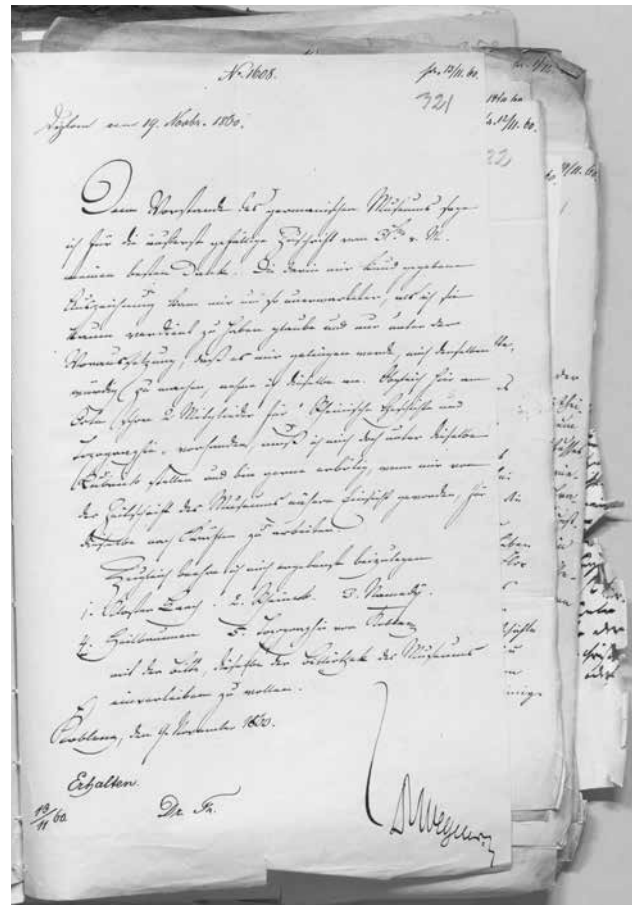 No 1608.
pr. 13/11. 60.
321
Diplom vom 19. Novbr. 1860.
Dem Vorstande des germanischen Museums sage
ich für die äußerst gefällige Zuschrift vom v. M.
meinen besten Dank. Die darin mir kund gegebene
Auszeichnung kam mir um so unerwarteter, als ich sie
kaum verdient zu haben glaube und nur unter der
Voraussetzung, daß es mir gelingen werde, mich derselben
würdig zu machen, nehme ich dieselbe an. Obgleich hier am
schon 2 Mitglieder für Rheinische Geschichte und
Topographie vorhanden, muß ich mich doch unter dieselbe
Rubrik stellen und bin gerne erbötig, wenn mir von
der Zeitschrift des Museums nähere Einsicht geworden, für
dieselbe nach Kräften zu arbeiten.
Zugleich beehre ich mich ergebenst beizulegen
1. Kloster Laach. 2. Rheineck. 3. Namedy.
4. Heilbrunnen 5. Topographie von
mit der Bitte, dieselben der Bibliothek des Museums
einverleiben zu wollen.
Koblenz, den 9. November 1860.
Erhalten.
13/11 60
Dr. Fr.
Dr Wegeler